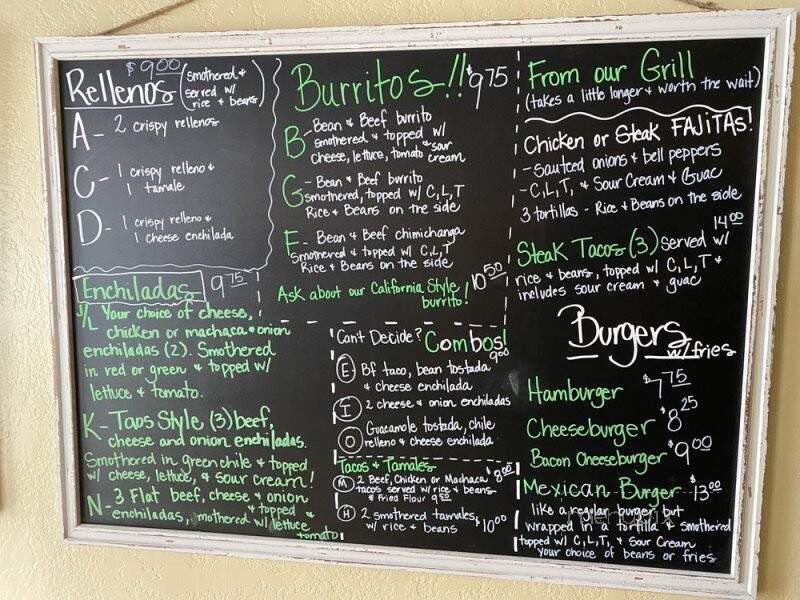 Rellenos $9.00 (smothered &
served w/
rice & beans)
A- 2 crispy rellenos
C- 1 crispy relleno &
1 tamale
D- 1 crispy relleno &
1 cheese enchilada
Enchiladas 9.75
J/L Your choice of cheese,
chicken or machaca & onion
enchiladas (2). Smothered
in red or green & topped w/
lettuce & tomato.
K- Taos Style (3) beef,
cheese and onion enchiladas.
Smothered in green chile & topped
w/ cheese, lettuce, & sour cream!
N- 3 Flat beef, cheese & onion
enchiladas, smothered & topped &
w/ lettuce
tomato
Burritos!! $9.75
B- Bean & Beef burrito
smothered & topped w/
cheese, lettuce, tomato & sour
cream
G- Bean & Beef burrito
smothered, topped w/ C,L,T
Rice & Beans on the side
F- Bean & Beef chimichanga
Smothered & topped w/ C,L,T
Rice & Beans on the side
Ask about our California Style
burrito! 10.50
Can't Decide? Combos!
9.00
E Bf taco, bean tostada
& cheese enchilada
I 2 cheese & onion enchiladas
O Guacamole tostada, chile
relleno & cheese enchilada
Tacos & Tamales
M 2 Beef, Chicken or Machaca $8.00
tacos served w/ rice & beans
& Fried Flour 9.50
H 2 smothered tamales, $10.00
w/ rice & beans
From our Grill
(takes a little longer & worth the wait)
Chicken or Steak FAJITAS!
- sauteed onions & bell peppers
- C,L,T, & Sour Cream & Guac
3 tortillas - Rice & Beans on the side
14.00
Steak Tacos (3) served w/
rice & beans, topped w/ C,L,T &
includes sour cream & guac
Burgers
w/ fries
Hamburger $7.75
Cheeseburger $8.25
Bacon Cheeseburger $9.00
Mexican Burger $13.00
like a regular burger but
wrapped in a tortilla & smothered
topped w/ C,L,T, & Sour Cream
your choice of beans or fries